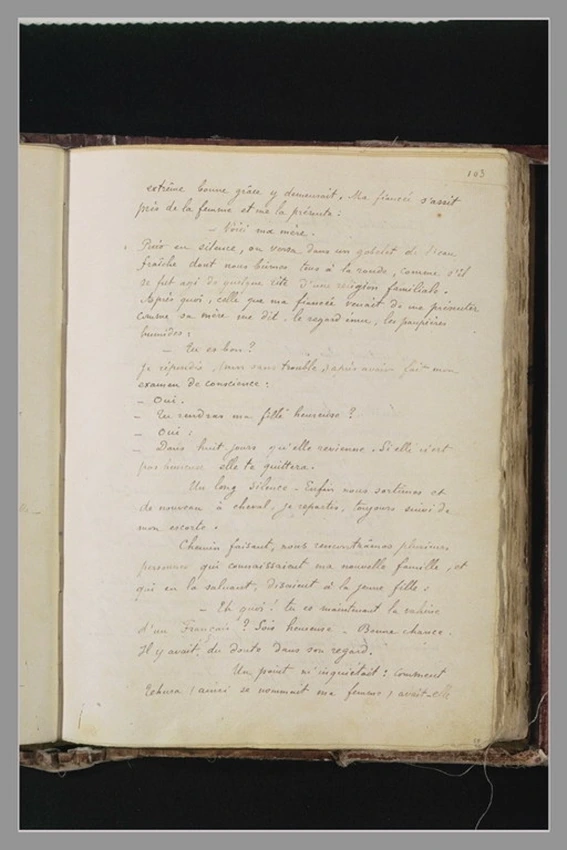 103
extrême bonne grâce y demeurait. Ma fiancée s'assit
près de la femme et me la présenta :
– Voici ma mère.
Puis en silence, on versa dans un gobelet de l'eau
fraîche dont nous bûmes tous à la ronde, comme s'il
se fut agi de quelque rite d'une religion familiale.
Après quoi, celle que ma fiancée venait de me présenter
comme sa mère me dit, le regard ému, les paupières
humides :
– Tu es bon ?
Je répondis, (non sans trouble,) après avoir fait mon
examen de conscience :
– Oui.
– Tu rendras ma fille heureuse ?
– Oui :
– Dans huit jours qu'elle revienne. Si elle n'est
pas heureuse elle te quittera.
Un long silence – Enfin nous sortîmes et
de nouveau à cheval, je repartis, toujours suivi de
mon escorte.
Chemin faisant, nous rencontrâmes plusieurs
personnes qui connaissaient ma nouvelle famille, et
qui en la saluant, disaient à la jeune fille :
– Eh quoi ! tu es maintenant la vahine
d'un Français ? Sois heureuse – Bonne chance.
Il y avait du doute dans son regard.
Un point m'inquiétait : Comment
Tehura (ainsi se nommait ma femme) avait-elle